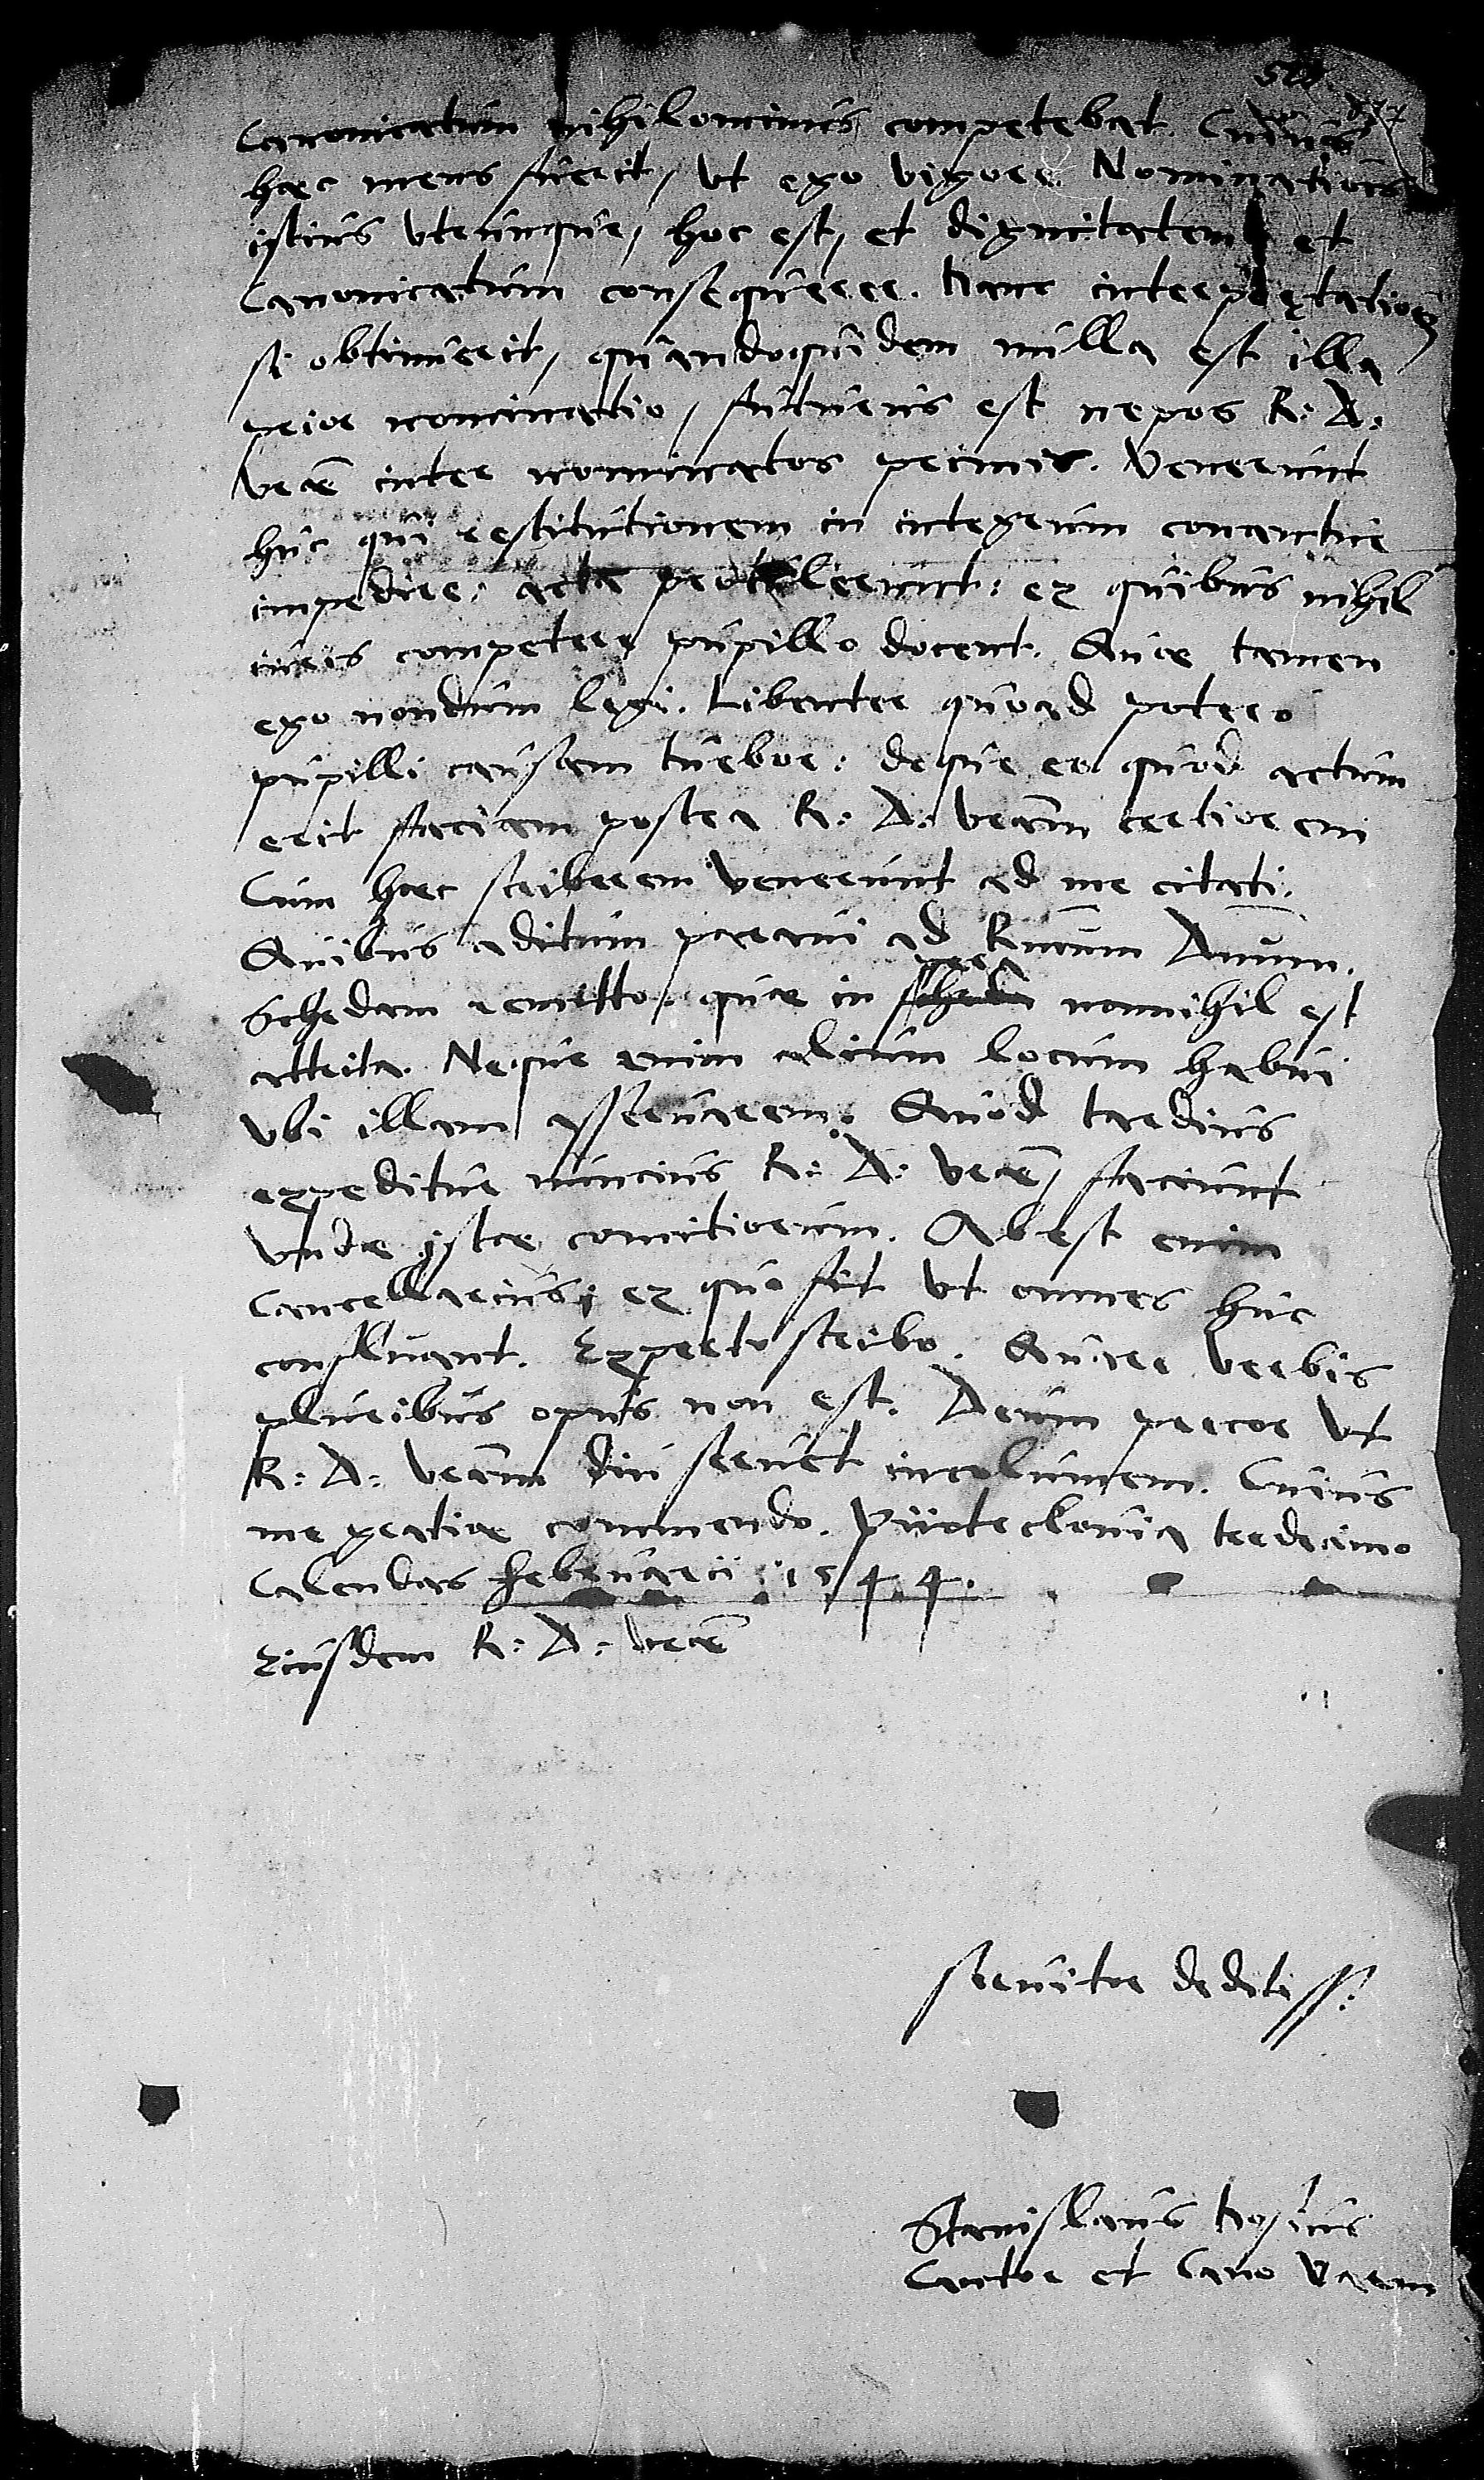 Canonicatum nihilominus competebat. Cuius
haec mens fuerit, ut ego vigore Nominationis
istius utrunque, hoc est, et dignitatem et
Canonicatum consequerer. Hanc interpretationem
si obtinuerit, quandoquidem nulla est illa
prior nominatio, futurus est nepos R: D:
vrae inter nominatos primus. Venerunt
huc qui restitutionem in integrum conantur
impedire: acta protulerunt: ex quibus nihil
iuris competere pupillo docent. Quae tamen
ego nondum legi. Libenter quoad potero
pupilli causam tuebor: deque eo quod actum
erit faciam postea R: D: vram certiorem
Cum haec scriberem venerunt ad me citati.
Quibus aditum paravi ad Rmum Dnum.
Schedam remitto, quae in pera nonnihil est
attrita. Neque enim alium locum habui
ubi illam asservarem. Quod tardius
expeditur nuncius R: D: vrae, faciunt
undae istae comitiorum. Abest enim
Cancellarius, ex quo fit ut omnes huc
confluant. Experto scribo. Quare verbis
pluribus opus non est. Deum precor ut
R: D: vram diu servet incolumem. Cuius
me gratiae commendo. Piiotrclovia tredecimo
Calendas Februarii 1544.
Eiusdem R: D: vrae
servitor deditiss:
Stanislaus Hosius
Cantor et Cano Varm